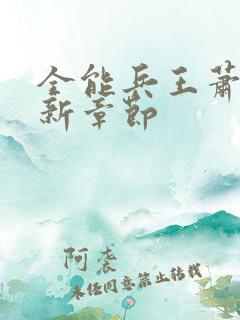 全能兵王萧
新章节
阿袭
未经同意禁止转载